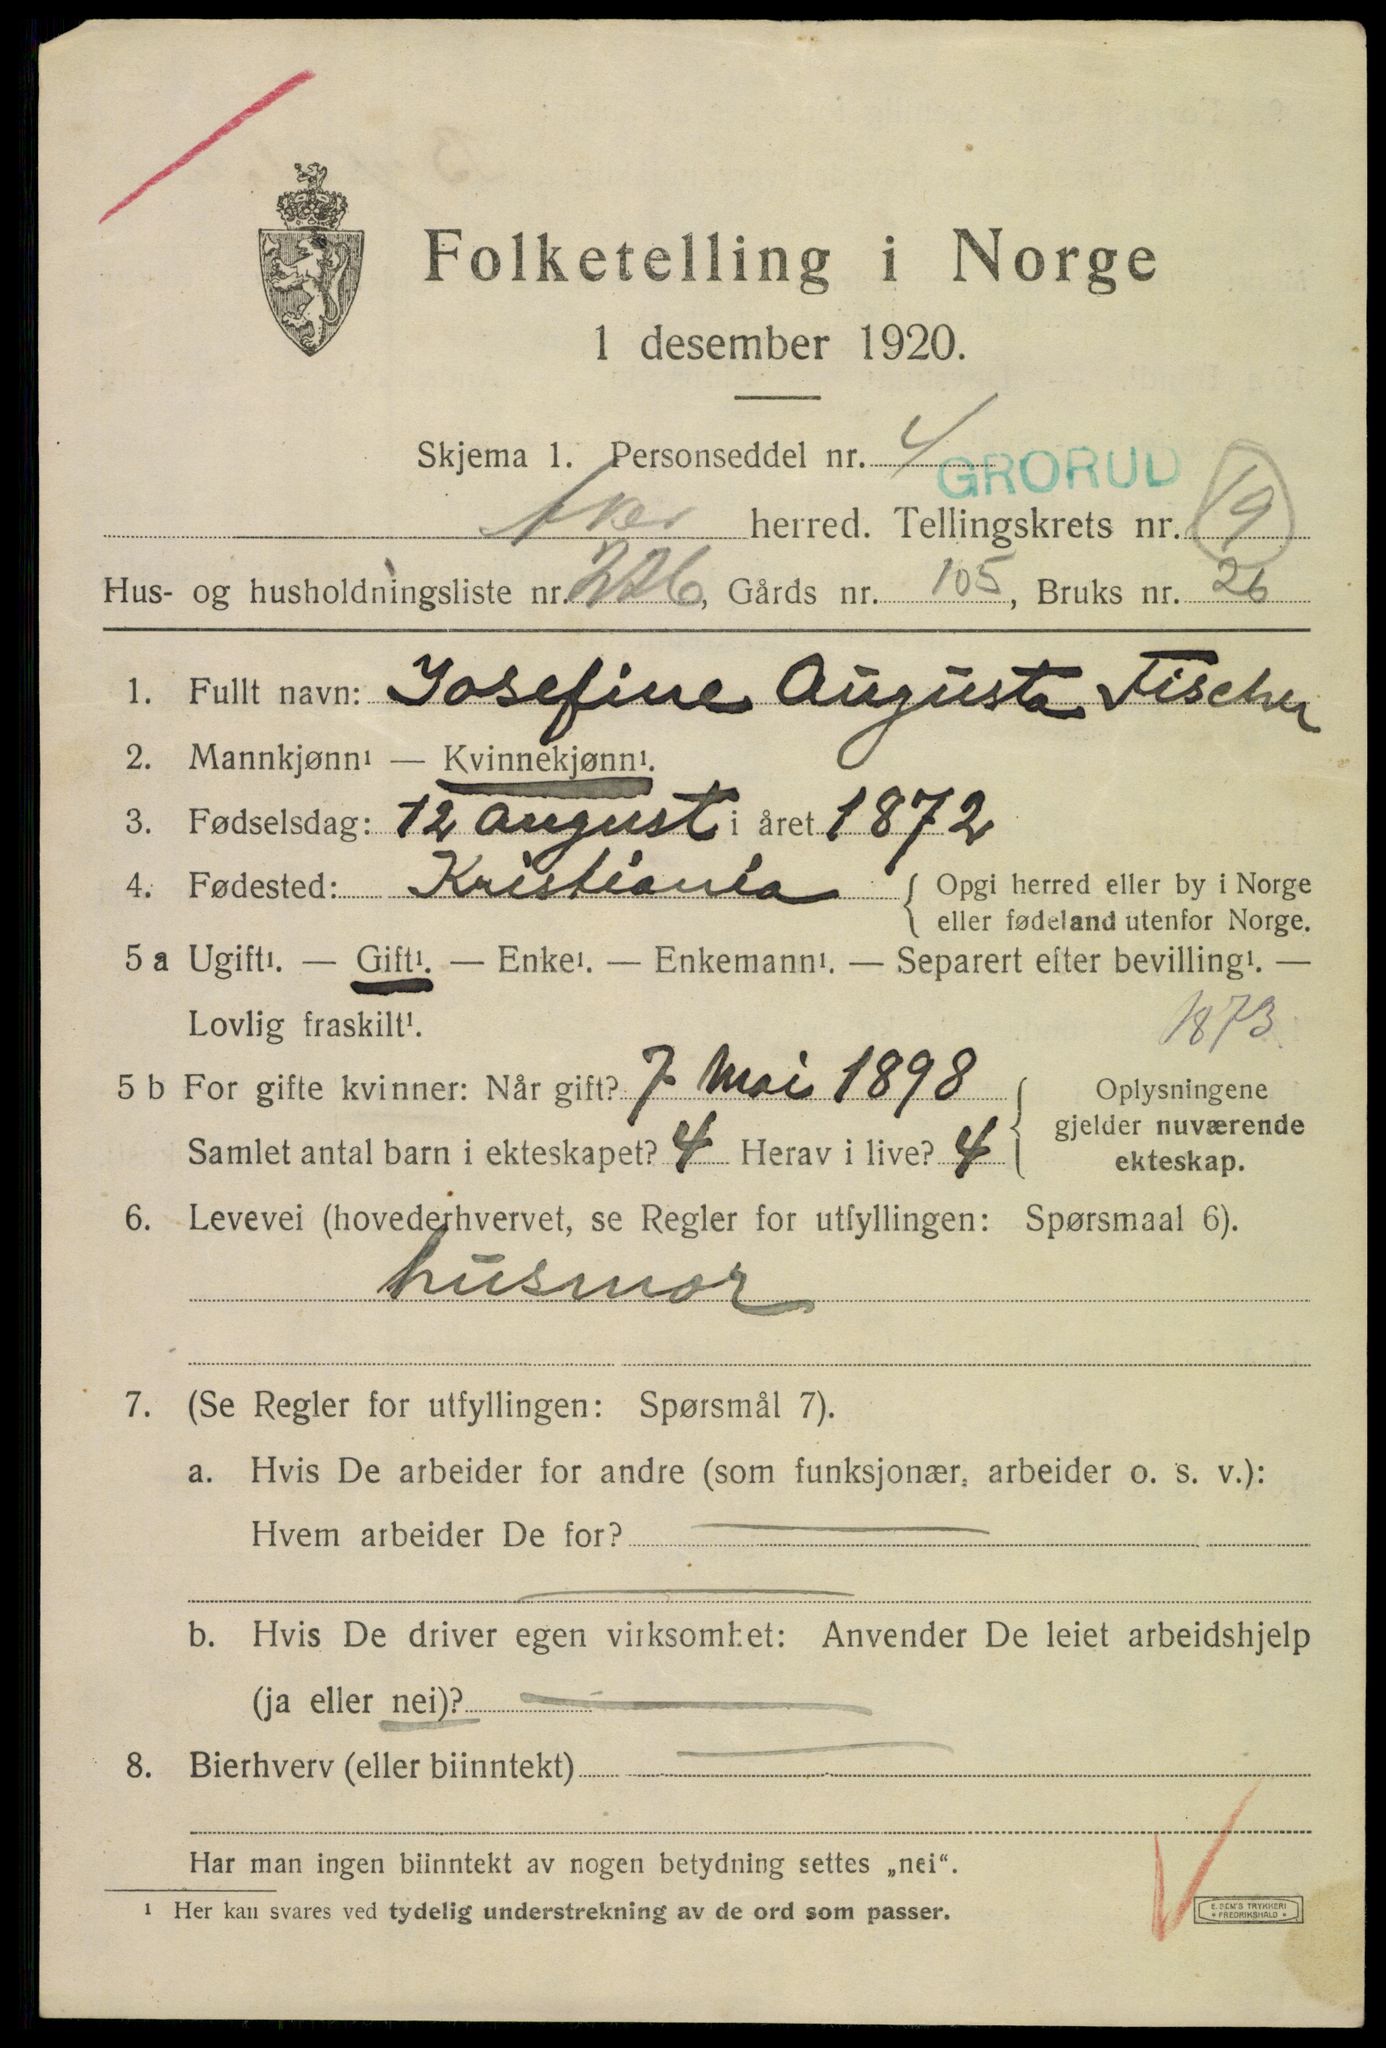 Folketelling i Norge
1 desember 1920.
Skjema 1. Personseddel nr. 4
GRORUD
Aker herred. Tellingskrets nr. 19
Hus- og husholdningsliste nr. 226, Gårds nr. 105, Bruks nr. 26
1. Fullt navn: Josefine Augusta Fischer
2. Mannkjønn¹ — Kvinnekjønn¹.
3. Fødselsdag: 12 august i året 1872
4. Fødested: Kristiania { Opgi herred eller by i Norge
eller fødeland utenfor Norge.
5 a Ugift¹. — Gift¹. — Enke¹. — Enkemann¹. — Separert efter bevilling¹. —
Lovlig fraskilt¹.
1873
5 b For gifte kvinner: Når gift? 7 Mai 1898
Samlet antal barn i ekteskapet? 4 Herav i live? 4
Oplysningene
gjelder nuværende
ekteskap.
6. Levevei (hovederhvervet, se Regler for utfyllingen: Spørsmaal 6).
husmor
7. (Se Regler for utfyllingen: Spørsmål 7).
a. Hvis De arbeider for andre (som funksjonær, arbeider o. s. v.):
Hvem arbeider De for?
b. Hvis De driver egen virksomhet: Anvender De leiet arbeidshjelp
(ja eller nei)?
8. Bierhverv (eller biinntekt)
Har man ingen biinntekt av nogen betydning settes „nei“.
¹ Her kan svares ved tydelig understrekning av de ord som passer.
E. SEM'S TRYKKERI
• FREDRIKSHALD •